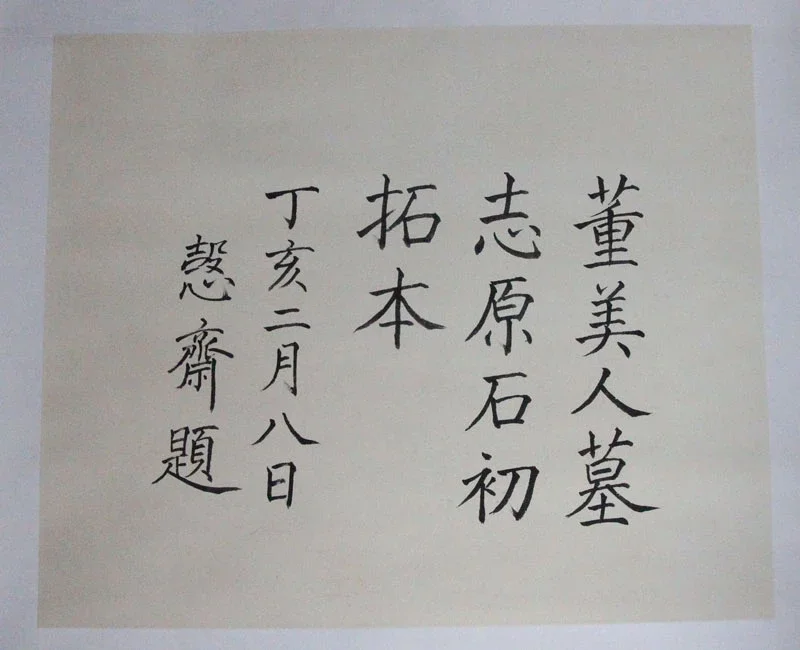 董美人墓
志原石初
拓本
丁亥二月八日
慤齋題